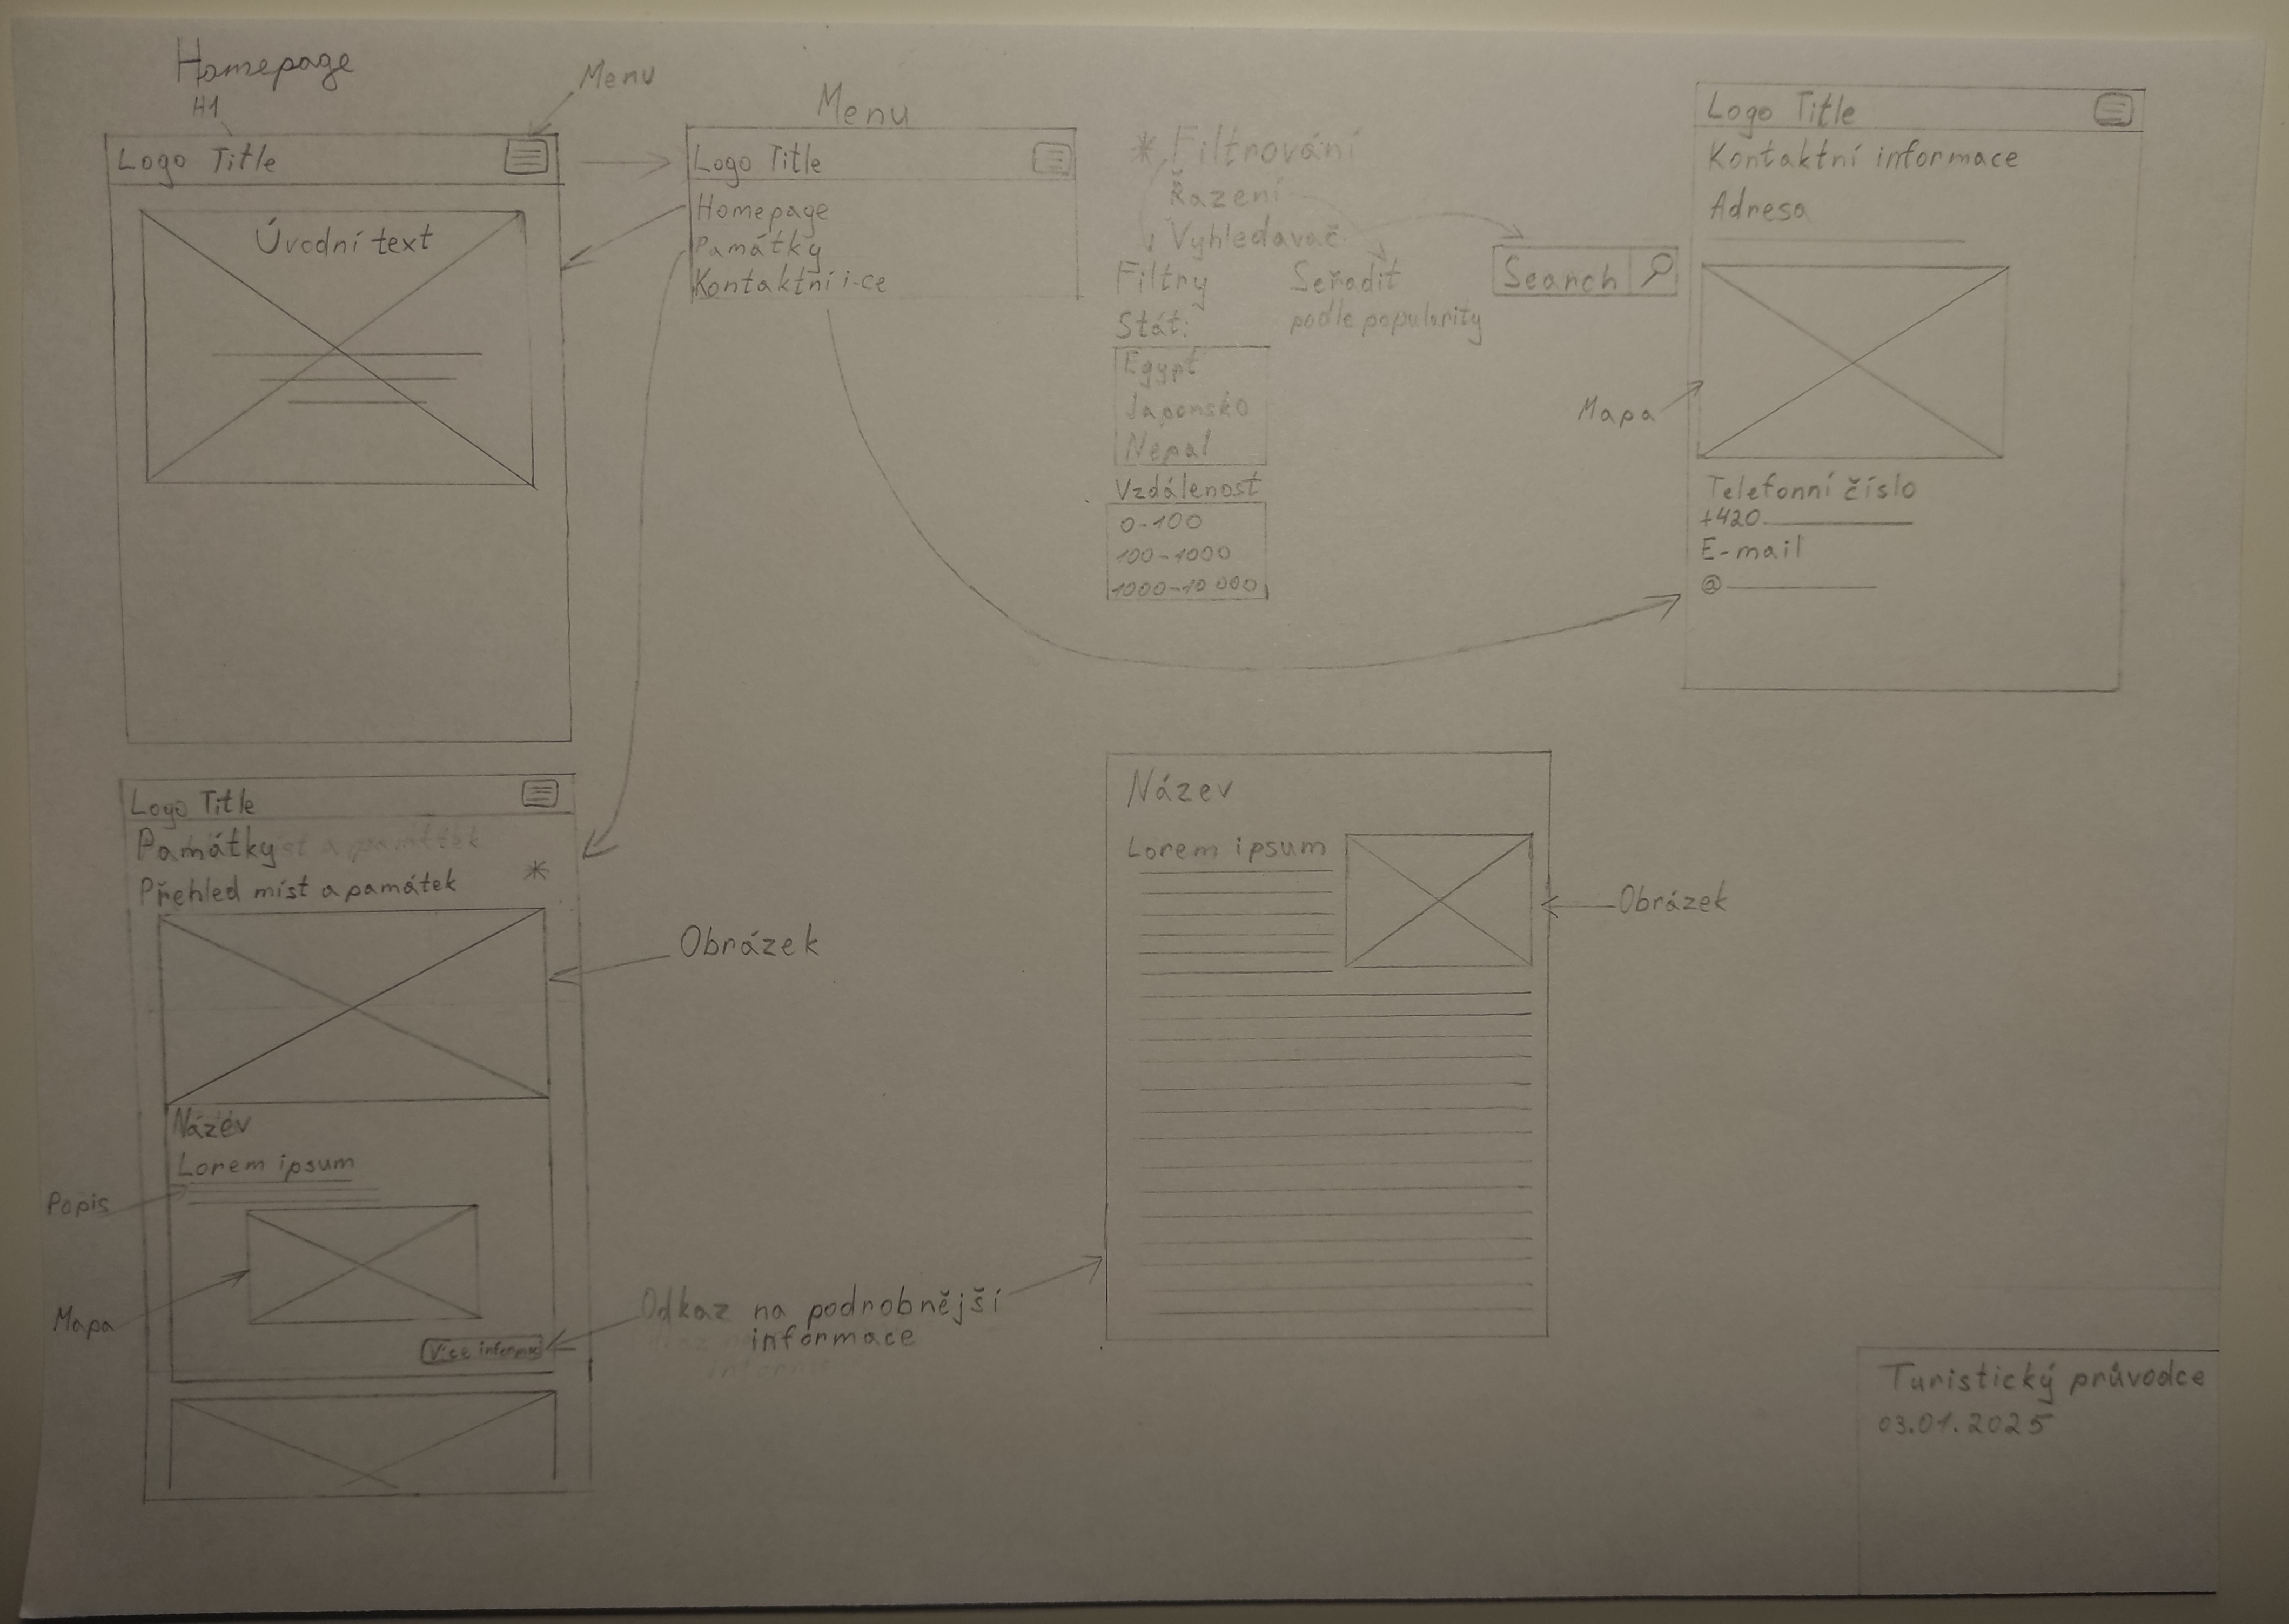 Homepage
H1
Menu
Logo Title
Úvodní text
Menu
Logo Title
Homepage
Památky
Kontaktní i-ce
* Filtrování
Řazení
Vyhledavač
Filtry
Stát:
Egypt
Japonsko
Nepal
Vzdálenost
0-100
100-1000
1000-10 000
Seřadit
podle popularity
Search
Logo Title
Kontaktní informace
Adresa
Mapa
Telefonní číslo
+420
E-mail
@
Logo Title
Památky
Přehled míst a památek *
Obrázek
Název
Lorem ipsum
Popis
Mapa
Více informací
Odkaz na podrobnější
informace
Název
Lorem ipsum
Obrázek
Turistický průvodce
03.01.2025